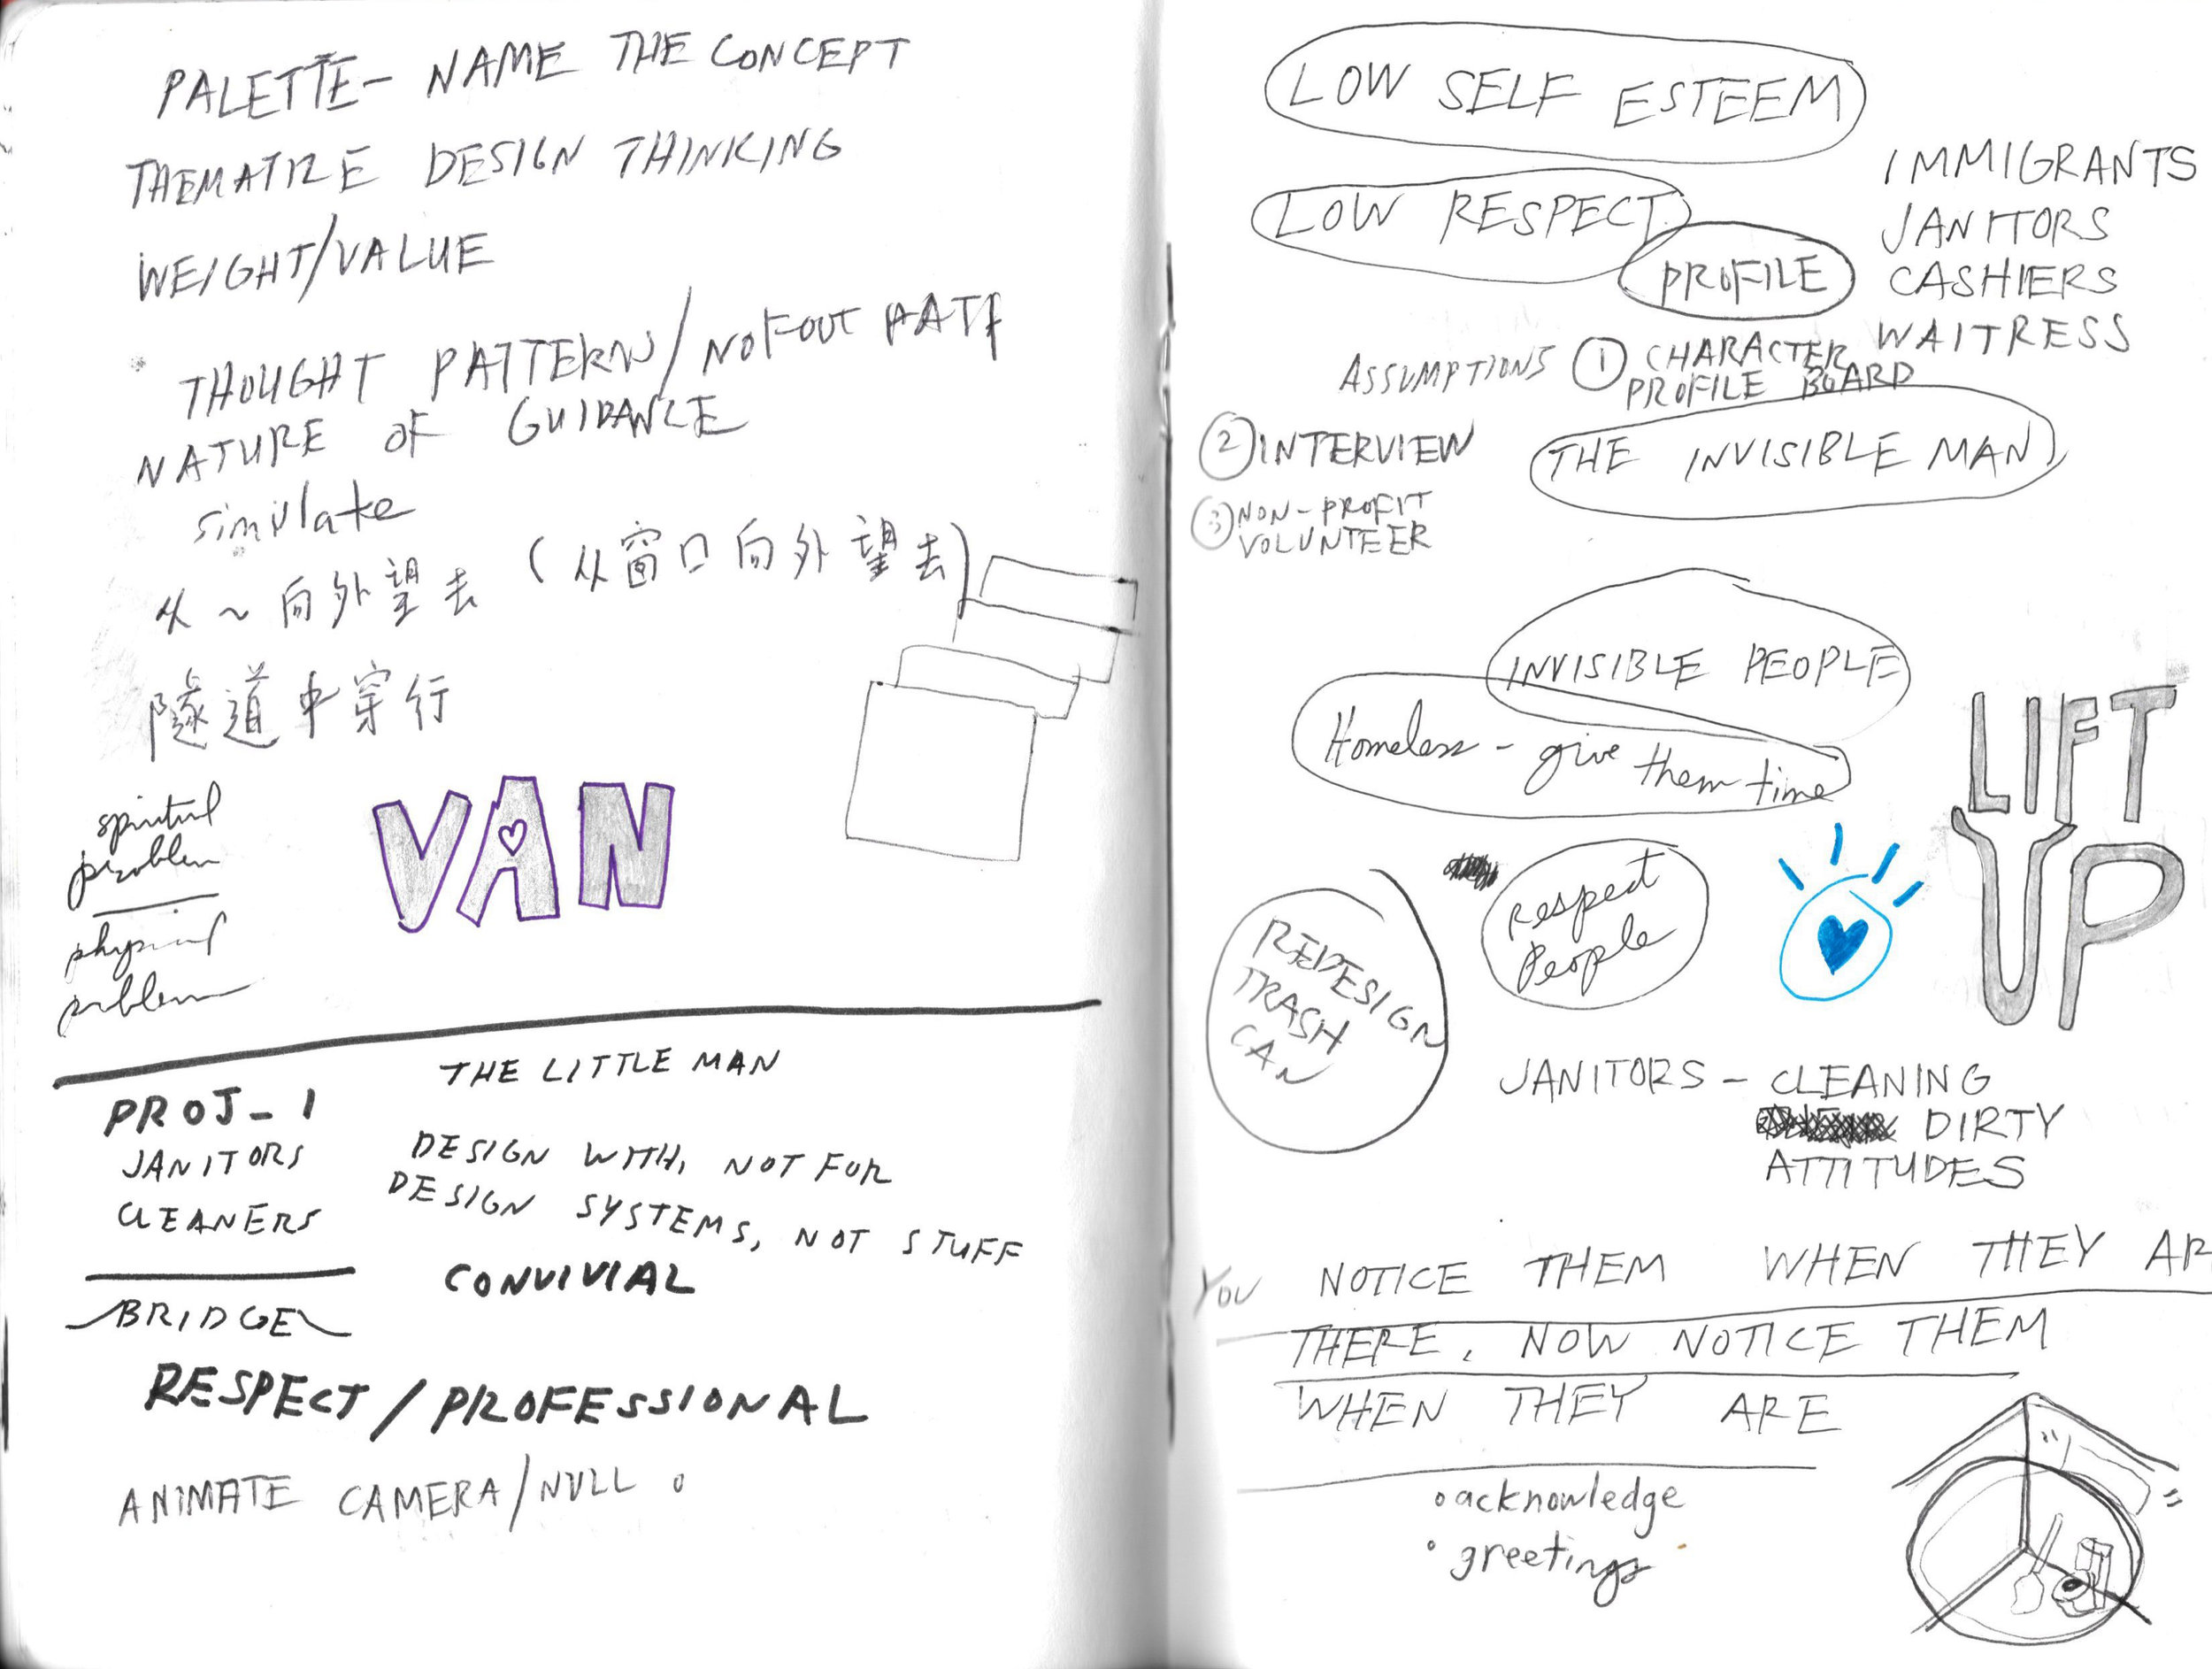 PALETTE- NAME THE CONCEPT
THEMATIZE DESIGN THINKING
WEIGHT/VALUE
THOUGHT PATTERN/
NATURE OF GUIDANCE
simulate
从~向外望去 (从窗口向外望去)
隧道中穿行
spiritual
problem
physical
problem
VAN
THE LITTLE MAN
PROJ-1
JANITORS
CLEANERS
DESIGN WITH, NOT FOR
DESIGN SYSTEMS, NOT STUFF
CONVIVIAL
BRIDGE
RESPECT/PROFESSIONAL
ANIMATE CAMERA/NULL
LOW SELF ESTEEM
LOW RESPECT
PROFILE
IMMIGRANTS
JANITORS
CASHIERS
WAITRESS
ASSUMPTIONS ① CHARACTER
PROFILE BOARD
② INTERVIEW
THE INVISIBLE MAN
③ NON-PROFIT
VOLUNTEER
INVISIBLE PEOPLE
Homeless - give them time
LIFT
UP
Respect
People
REDESIGN
TRASH
CAN
JANITORS - CLEANING
DIRTY
ATTITUDES
YOU NOTICE THEM WHEN THEY AR
THERE, NOW NOTICE THEM
WHEN THEY ARE
• acknowledge
• greetings